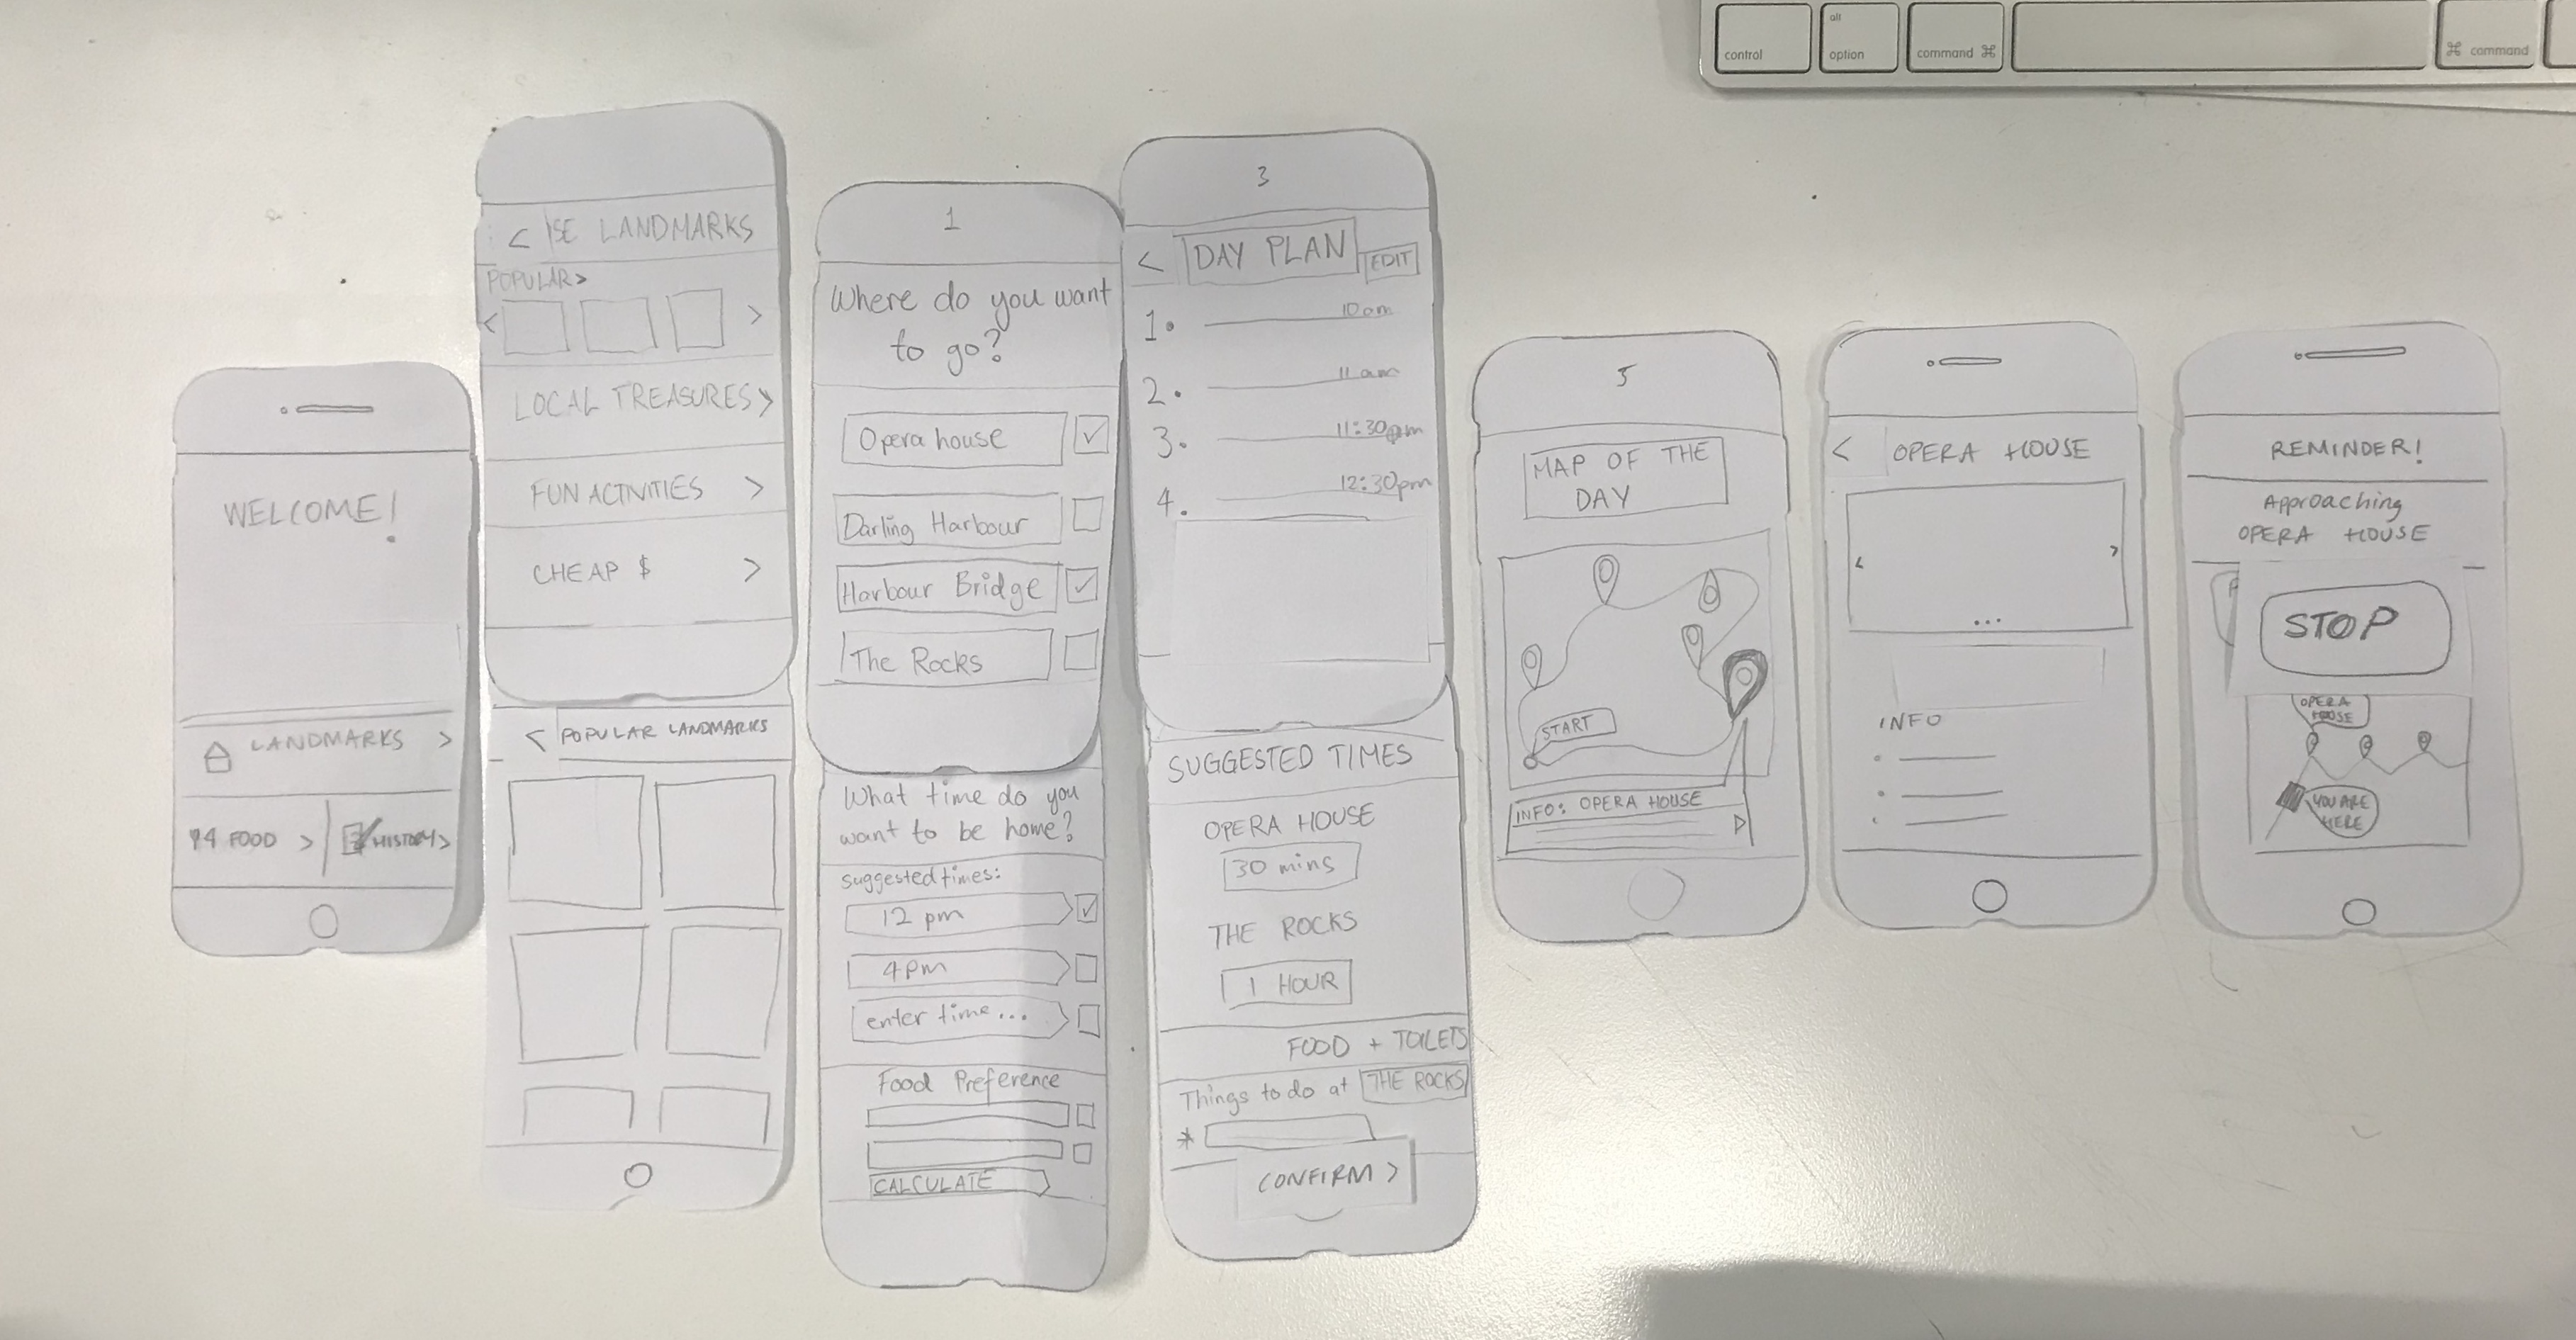 control
alt
option
command ⌘
⌘ command
WELCOME!
LANDMARKS >
FOOD >
HISTORY>
< SE LANDMARKS
POPULAR>
<
>
LOCAL TREASURES>
FUN ACTIVITIES >
CHEAP $ >
< POPULAR LANDMARKS
1
Where do you want
to go?
Opera house ✓
Darling Harbour
Harbour Bridge ✓
The Rocks
What time do you
want to be home?
Suggested times:
12 pm ✓
4pm
enter time...
Food Preference
CALCULATE
3
< DAY PLAN EDIT
1. 10am
2. 11am
3. 11:30pm
4. 12:30pm
SUGGESTED TIMES
OPERA HOUSE
30 mins
THE ROCKS
1 HOUR
FOOD + TOILETS
Things to do at THE ROCKS
*
CONFIRM >
5
MAP OF THE
DAY
START
INFO: OPERA HOUSE
< OPERA HOUSE
< >
...
INFO
REMINDER!
Approaching
OPERA HOUSE
STOP
OPERA
HOUSE
YOU ARE
HERE